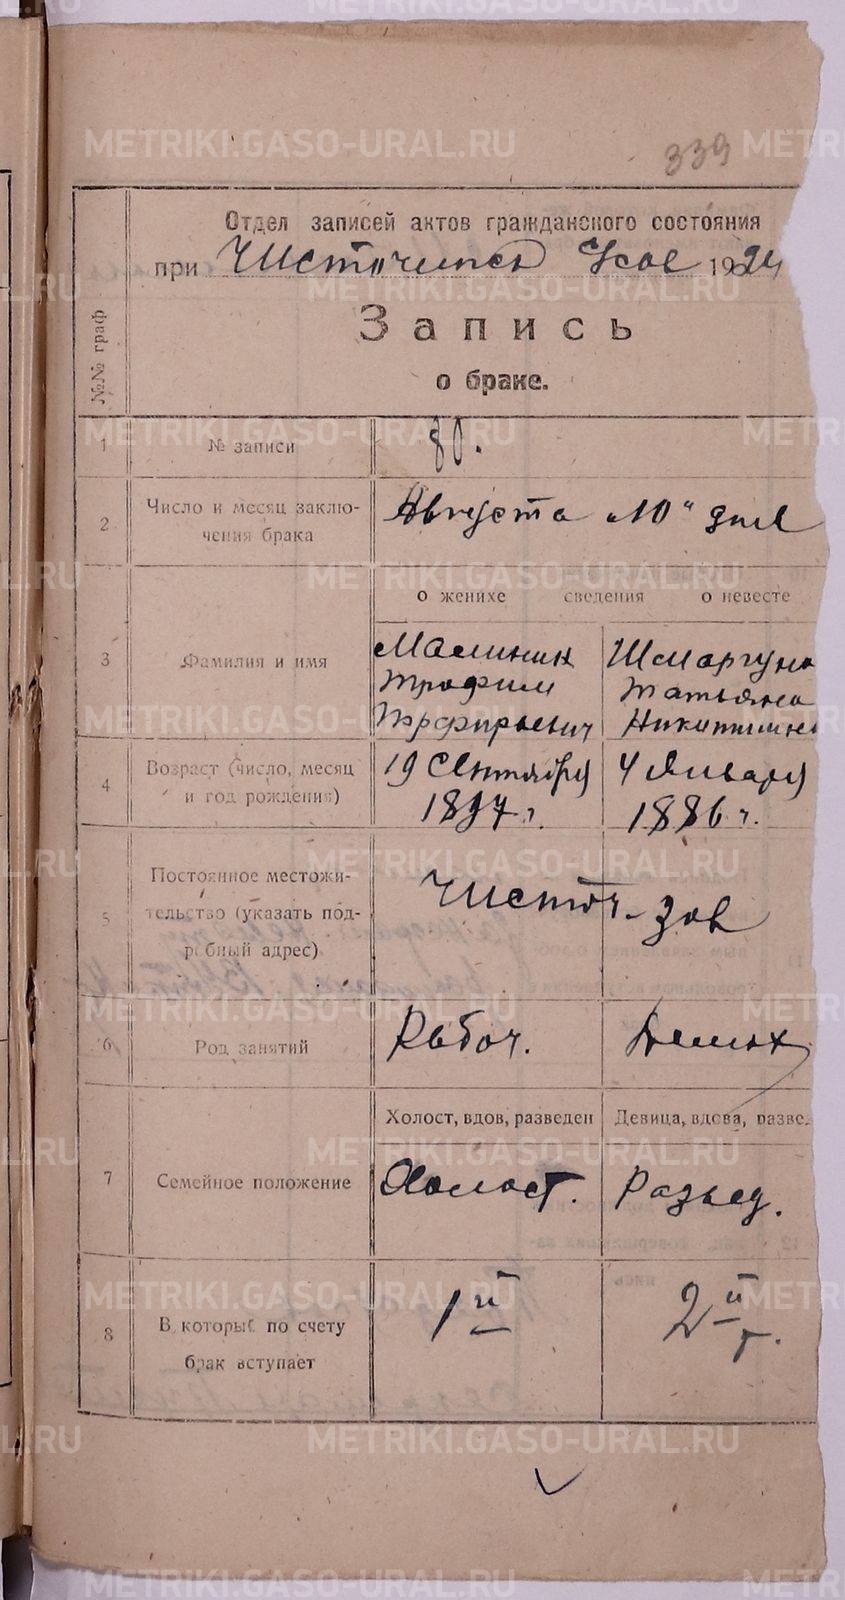 339
Отдел записей актов гражданского состояния
при 1924
Запись
о браке.
№№ граф
1 № записи 80.
2 Число и месяц заклю-
чения брака Августа „10" дня
о женихе сведения о невесте
3 Фамилия и имя
Малинин
Трофим
Шмаргуно
Татьяна
Никитишн
4 Возраст (число, месяц
и год рождения)
19 Сентября
1897 г.
4 Января
1886 г.
5 Постоянное местожи-
тельство (указать под-
робный адрес)
Чисточ-
6 Род занятий Рабоч. Домох
Холост, вдов, разведен Девица, вдова, разве
7 Семейное положение Холост. Развед.
8 В который по счету
брак вступает
1й 2й
METRIKI.GASO-URAL.RU